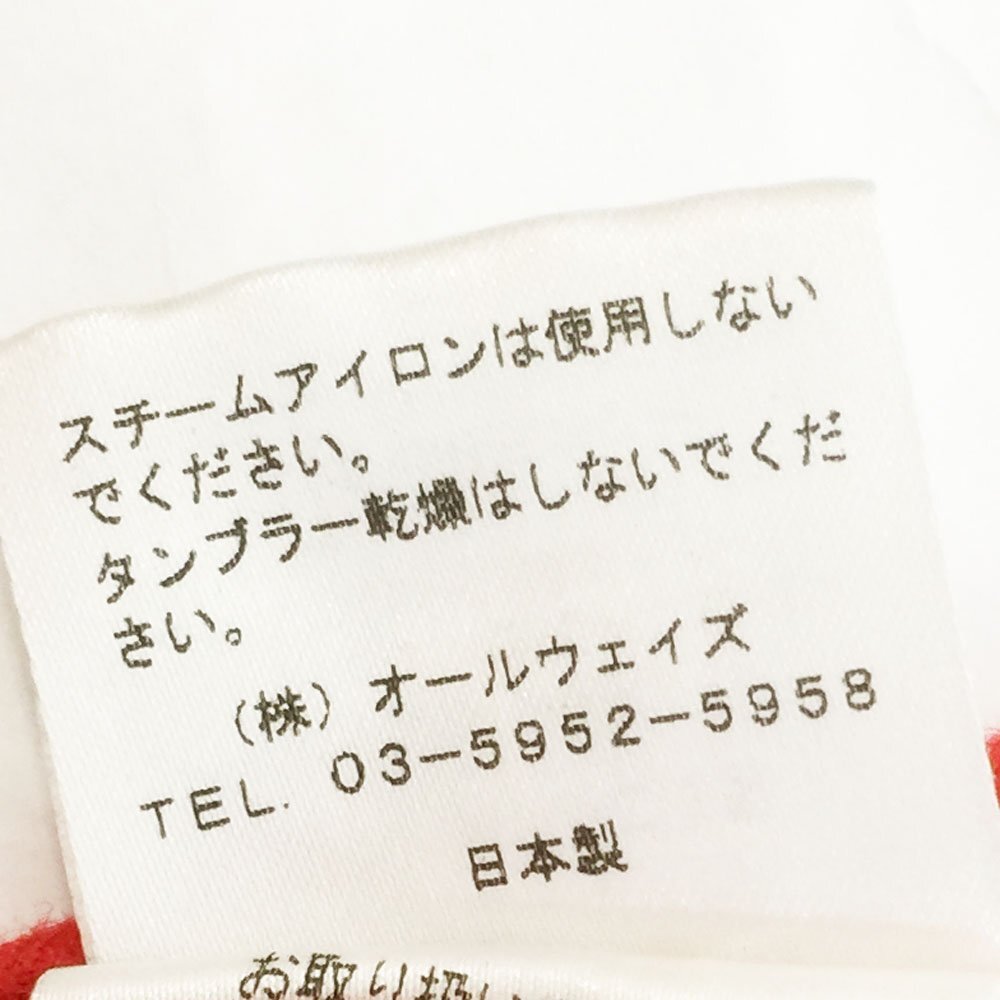 スチームアイロンは使用しない
でください。
タンブラー乾燥はしないでくだ
さい。
(株) オールウェイズ
TEL. 03-5952-5958
日本製
お取り扱い